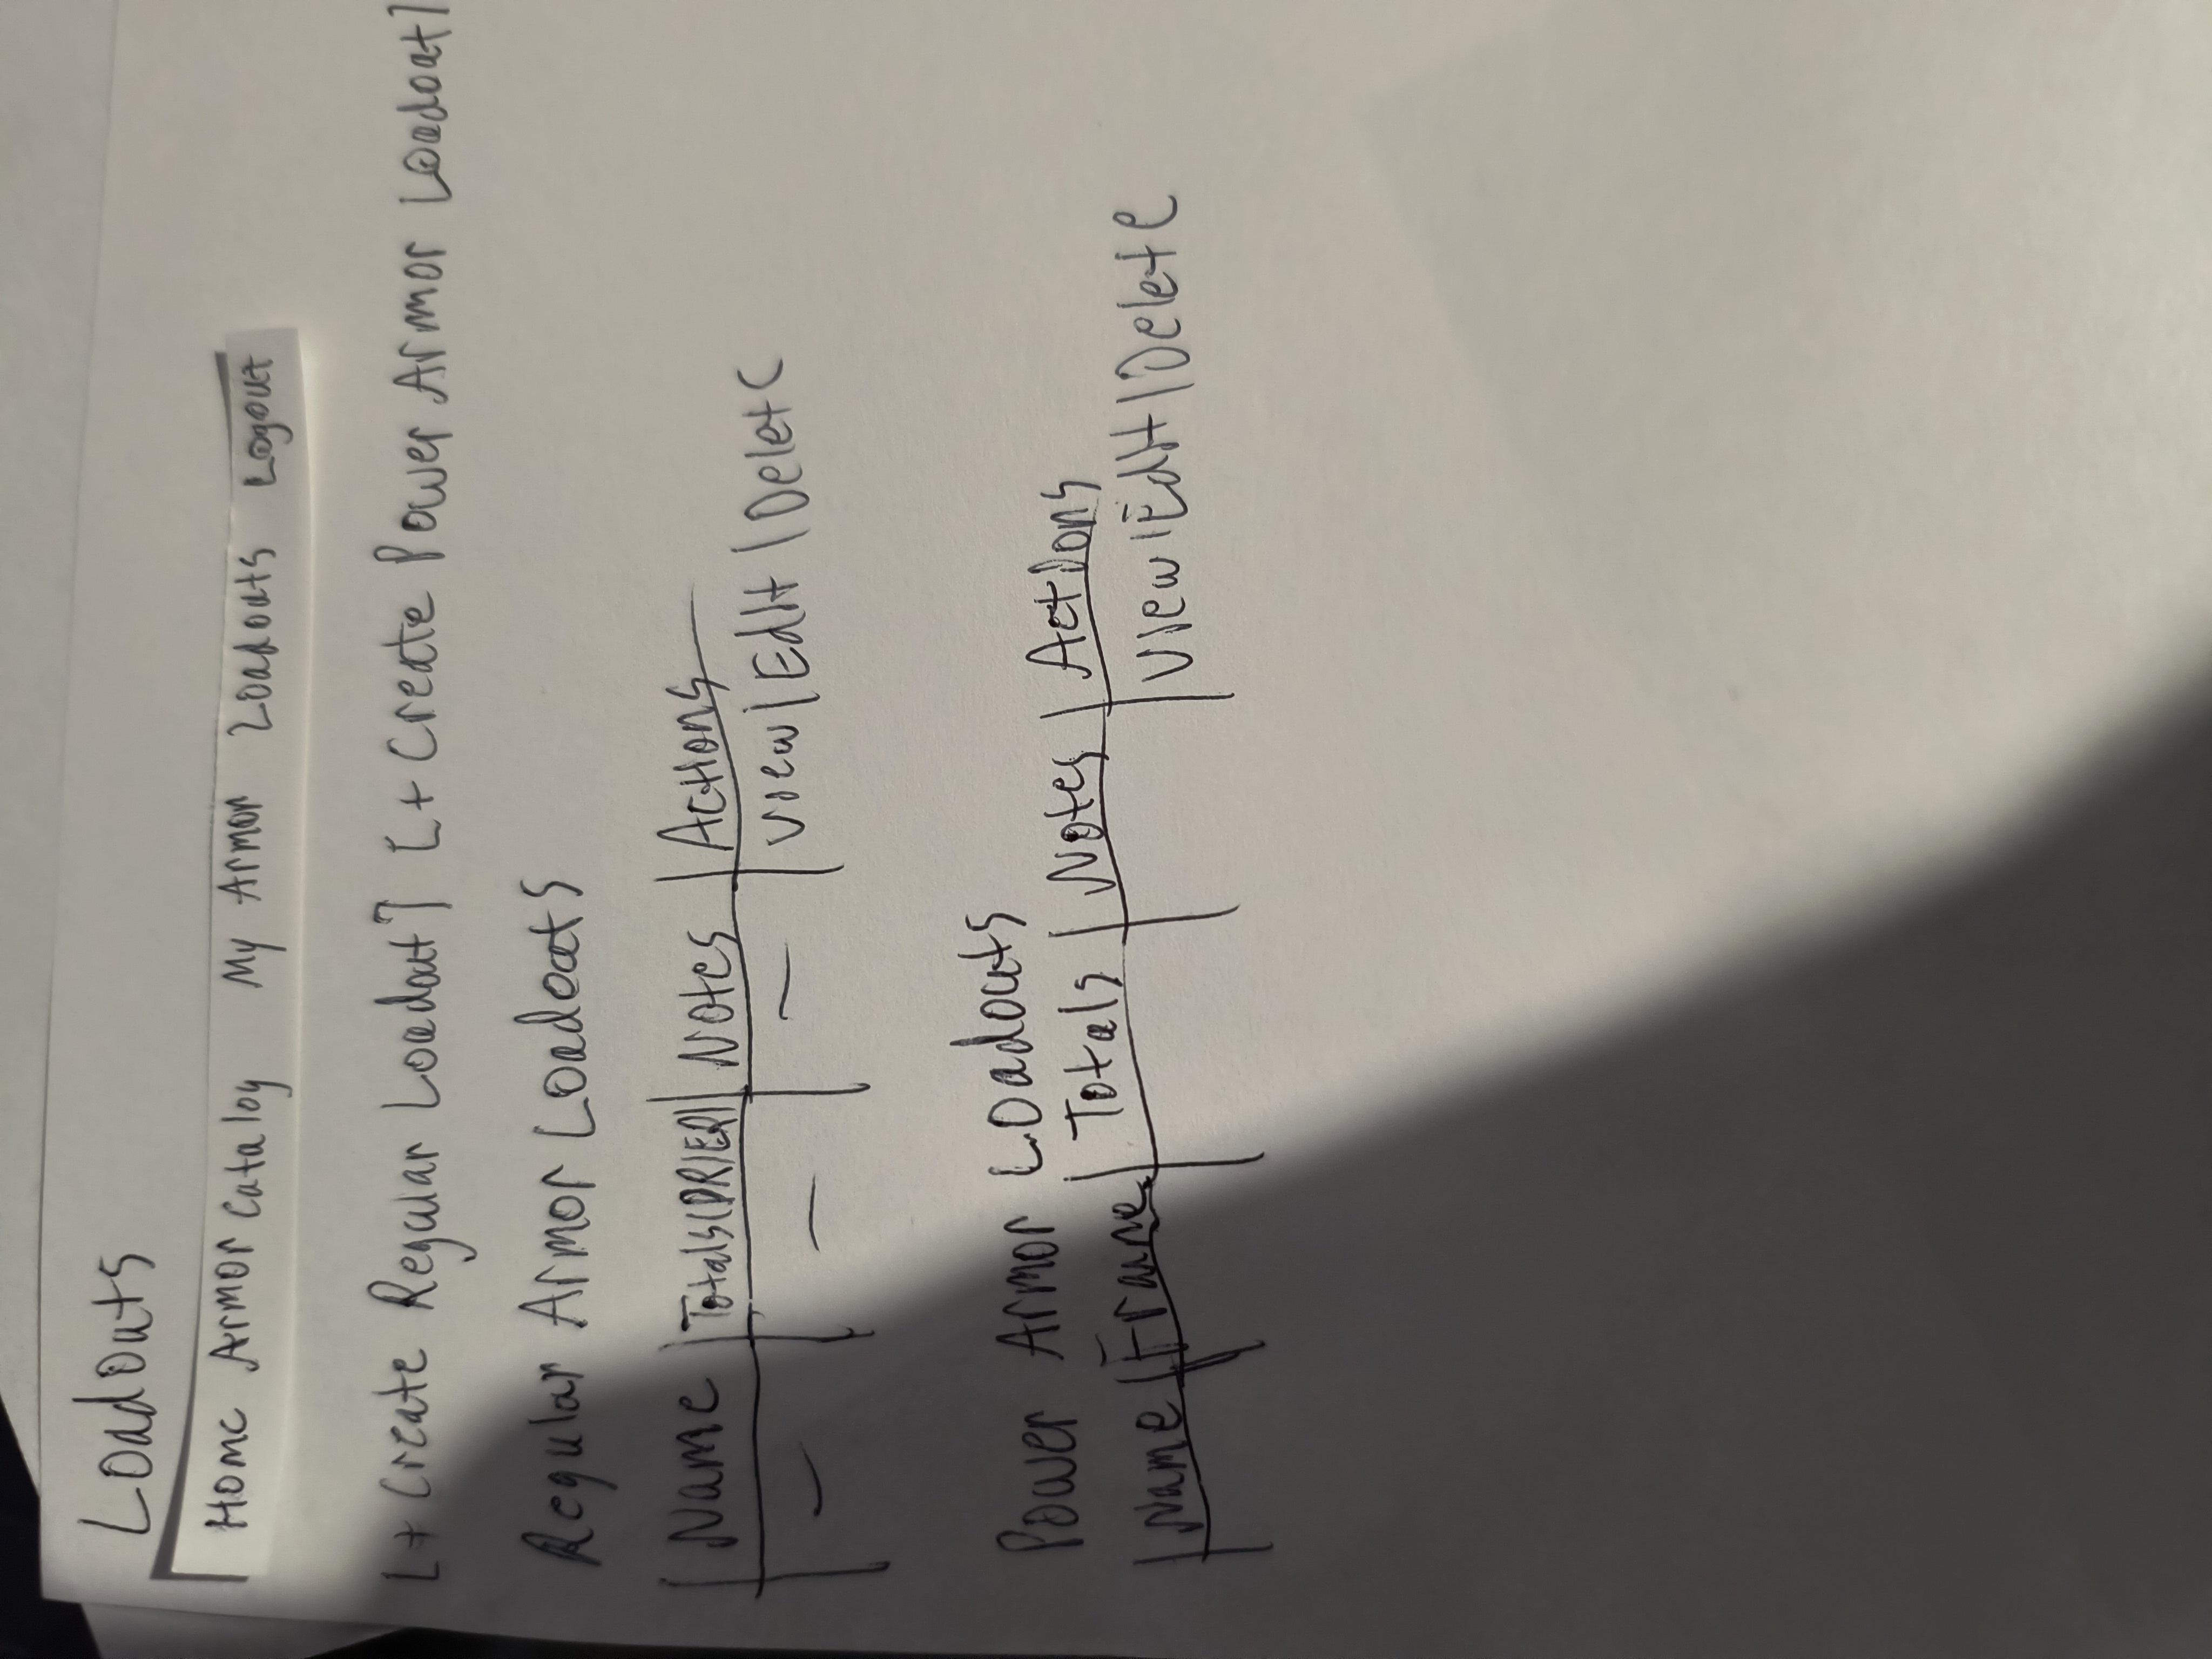 Loadouts
Home Armor Catalog My Armor Loadouts Logout
[+ Create Regular Loadout] [+ Create Power Armor Loadout]
Regular Armor Loadouts
| Name | Totals(DR/ER) | Notes | Actions
| — | — | — | View | Edit | Delete
Power Armor Loadouts
| Name | Frame | Totals | Notes | Actions
View | Edit | Delete